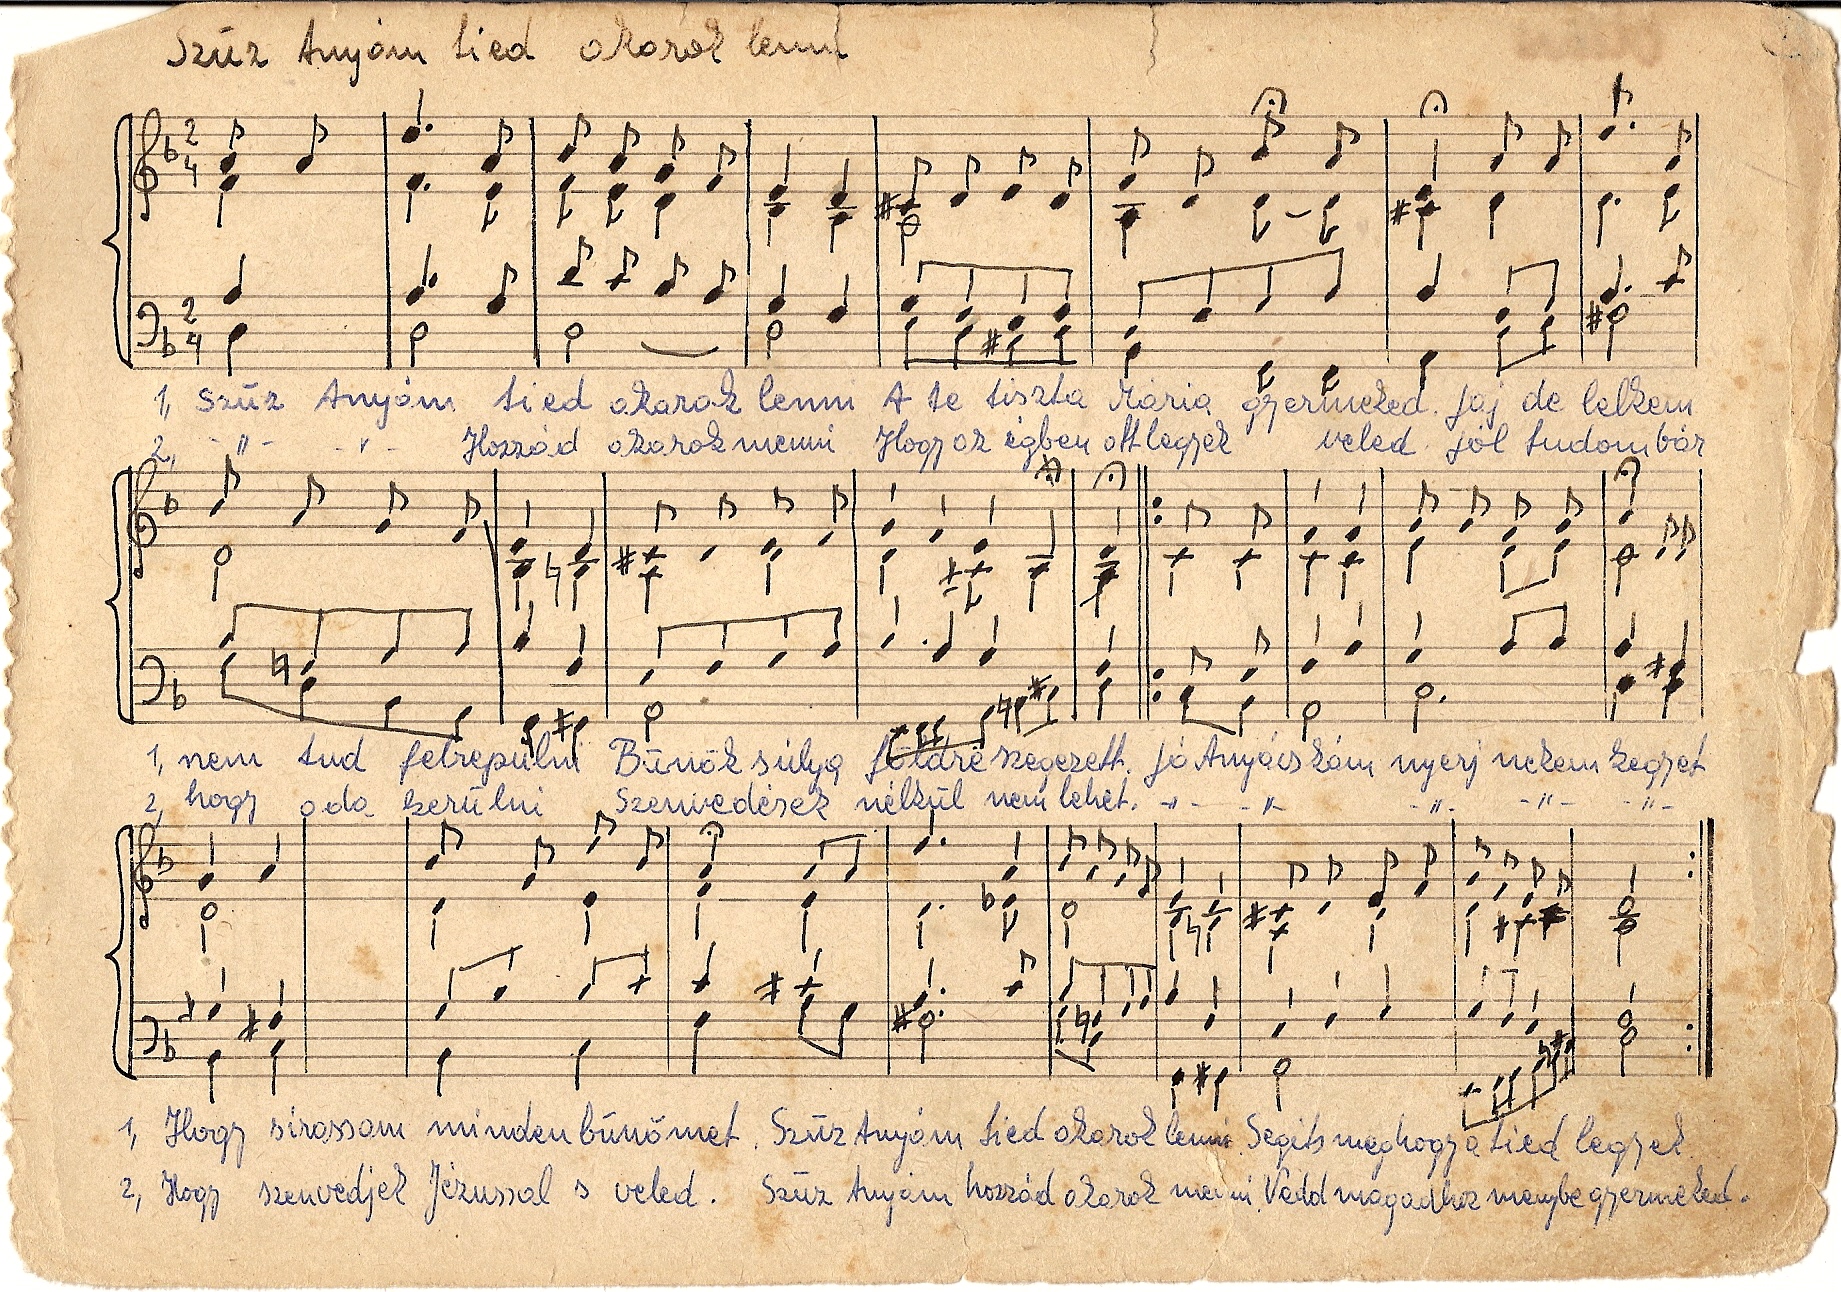 Szűz Anyám tied akarok lenni
2 4
2 4
1, Szűz Anyám tied akarok lenni A te tiszta Mária gyermeked. Jaj de lelkem
2, -"- -"- Hozzád akarok menni Hogy az égben ott legyek veled. Jól tudom bár
1, nem tud felrepülni Bűnök súlya földre szegezett. Jó Anyácskám nyerj nekem kegyet
2, hogy oda kerülni Szenvedések nélkül nem lehet. -"- -"- -"- -"- -"-
1, Hogy sirassam minden bűnömet. Szűz Anyám tied akarok lenni. Segits meg hogy a tied legyek.
2, Hogy szenvedjek Jézussal s veled. Szűz Anyám hozzád akarok menni. Vedd magadhoz menybe gyermeked.